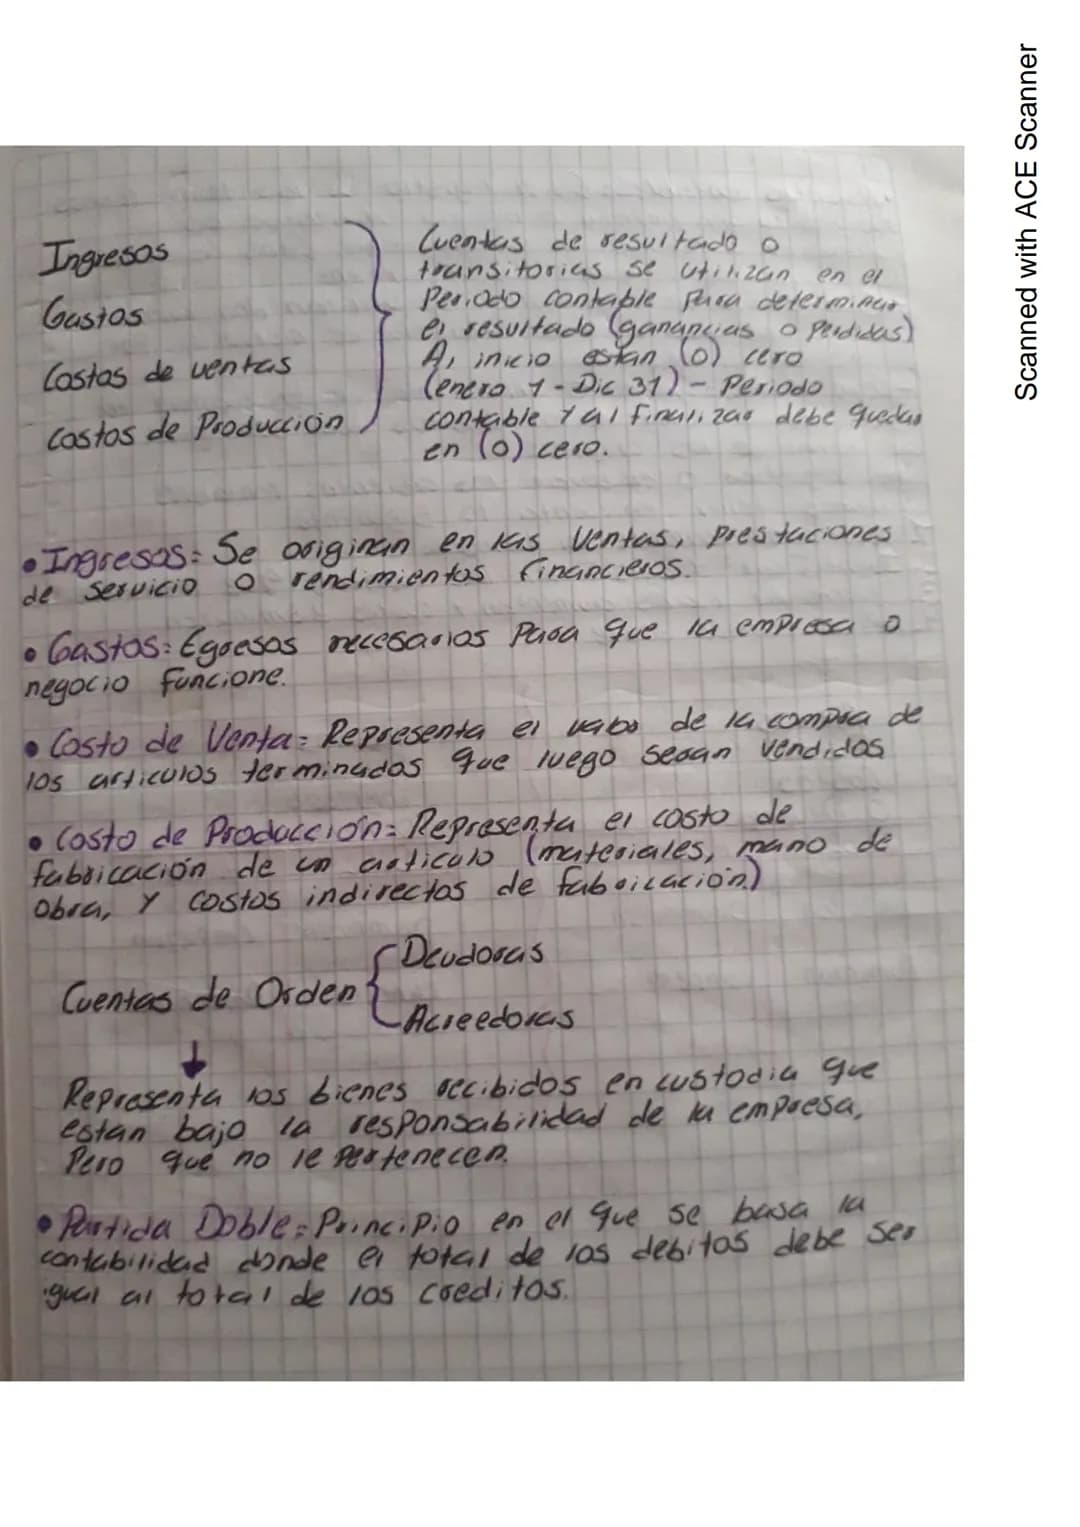 Ingresos
Gastos
Costos de ventas
Costos de Producción
Cuentas de resultado o
transitorias se utilizan en el
Periodo contable para determinar
el resultado (ganancias o perdidas)
Al inicio estan (0) cero
(enero 1 - Dic 31) - Periodo
contable Y al finalizar debe quedar
en (0) cero.
• Ingresos: Se originan en las Ventas, prestaciones
de servicio o rendimientos financieros.
• Gastos: Egresos necesarios Para que la empresa o
negocio funcione.
• Costo de Venta: Representa el valor de la compra de
los articulos terminados que luego seran vendidos
• Costo de Producción: Representa el costo de
fabricación de un articulo (materiales, mano de
Obra, Y costos indirectos de fabricación)
Cuentas de Orden
Deudoras
Acreedoras
Representa los bienes recibidos en custodia que
estan bajo la responsabilidad de la empresa,
Pero que no le pertenecen.
• Partida Doble: Principio en el que se basa la
contabilidad donde el total de los debitos debe ser
igual al total de los creditos.
Scanned with ACE Scanner